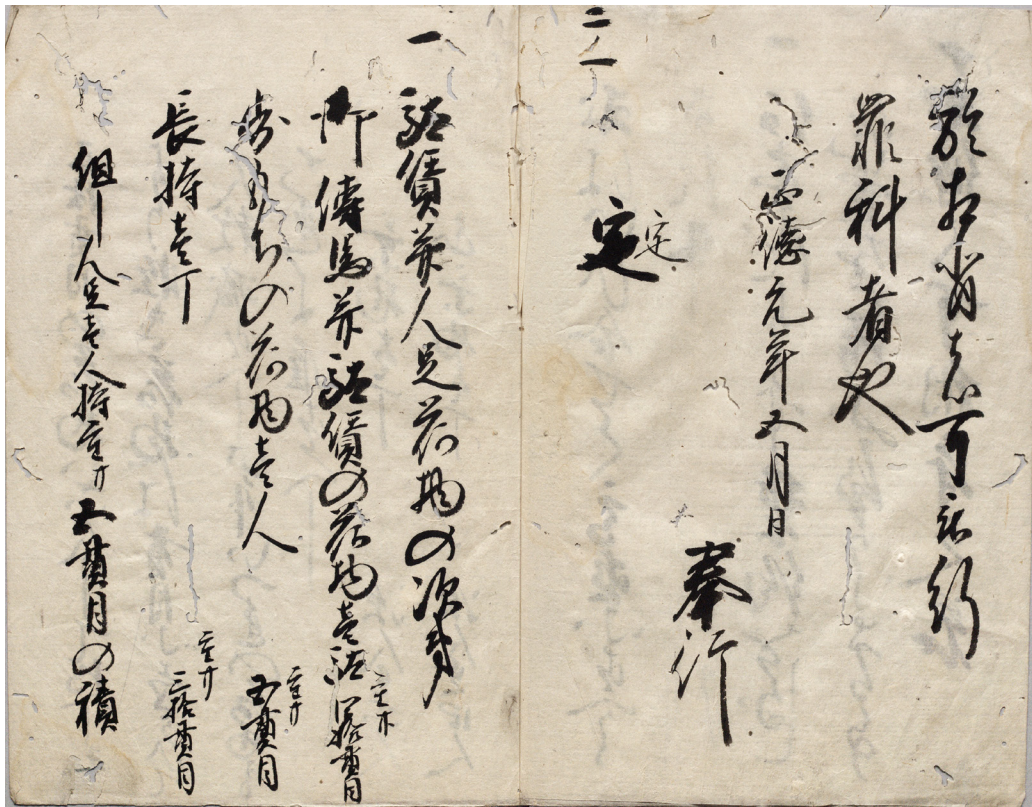 於相背者可被行
罪科者也
正徳元年五月日
奉行
二人
定
定
一
駄賃并人足荷物の次第
御傳馬并駄賃の荷物壱駄
重サ
四拾貫目
歩もちの荷物壱人
重サ
五貫目
長持壱丁
重サ
三拾貫目
但し人足壱人持重サ五貫目の積